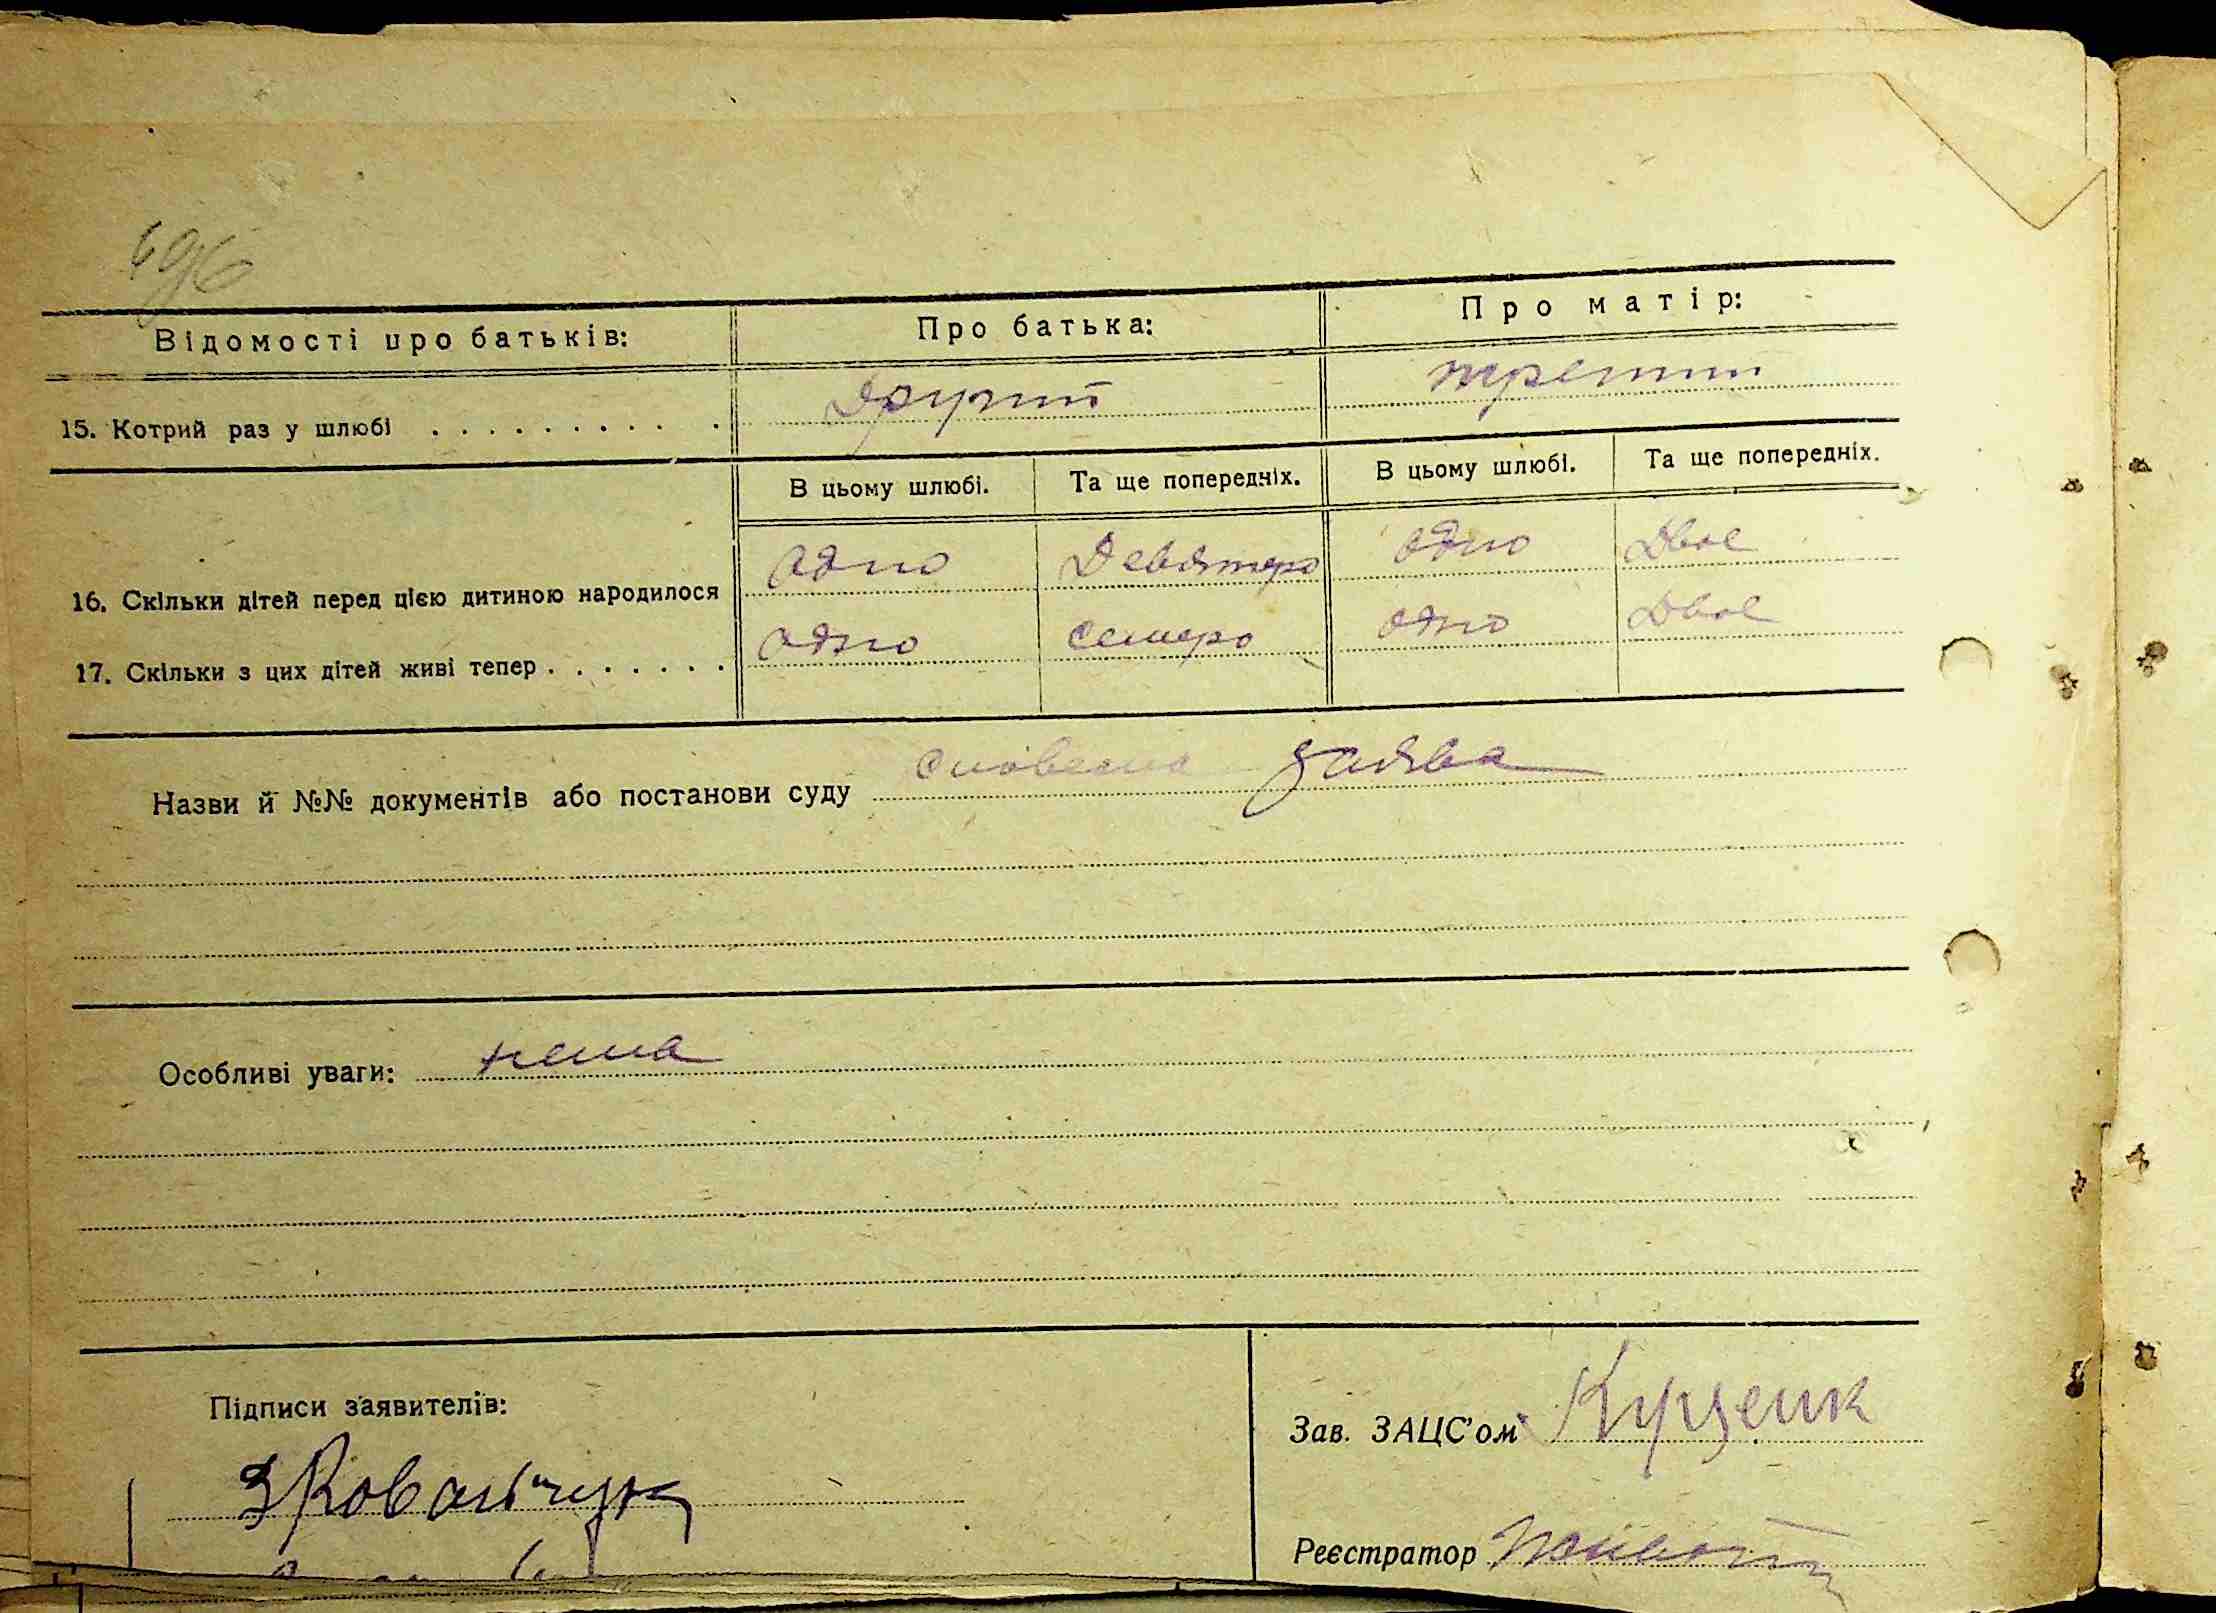 496
Відомості про батьків: Про батька: Про матір:
15. Котрий раз у шлюбі . . . . . . . . . . другий третий
В цьому шлюбі. Та ще попередніх. В цьому шлюбі. Та ще попередніх.
16. Скільки дітей перед цією дитиною народилося одно Девятеро одно Двое
17. Скільки з цих дітей живі тепер . . . . . . . одно семеро одно Двое
Назви й №№ документів або постанови суду словесна заява
Особливі уваги: нема
Підписи заявителів:
Зав. ЗАЦС'ом Куценк
З Ковальчук
Реєстратор